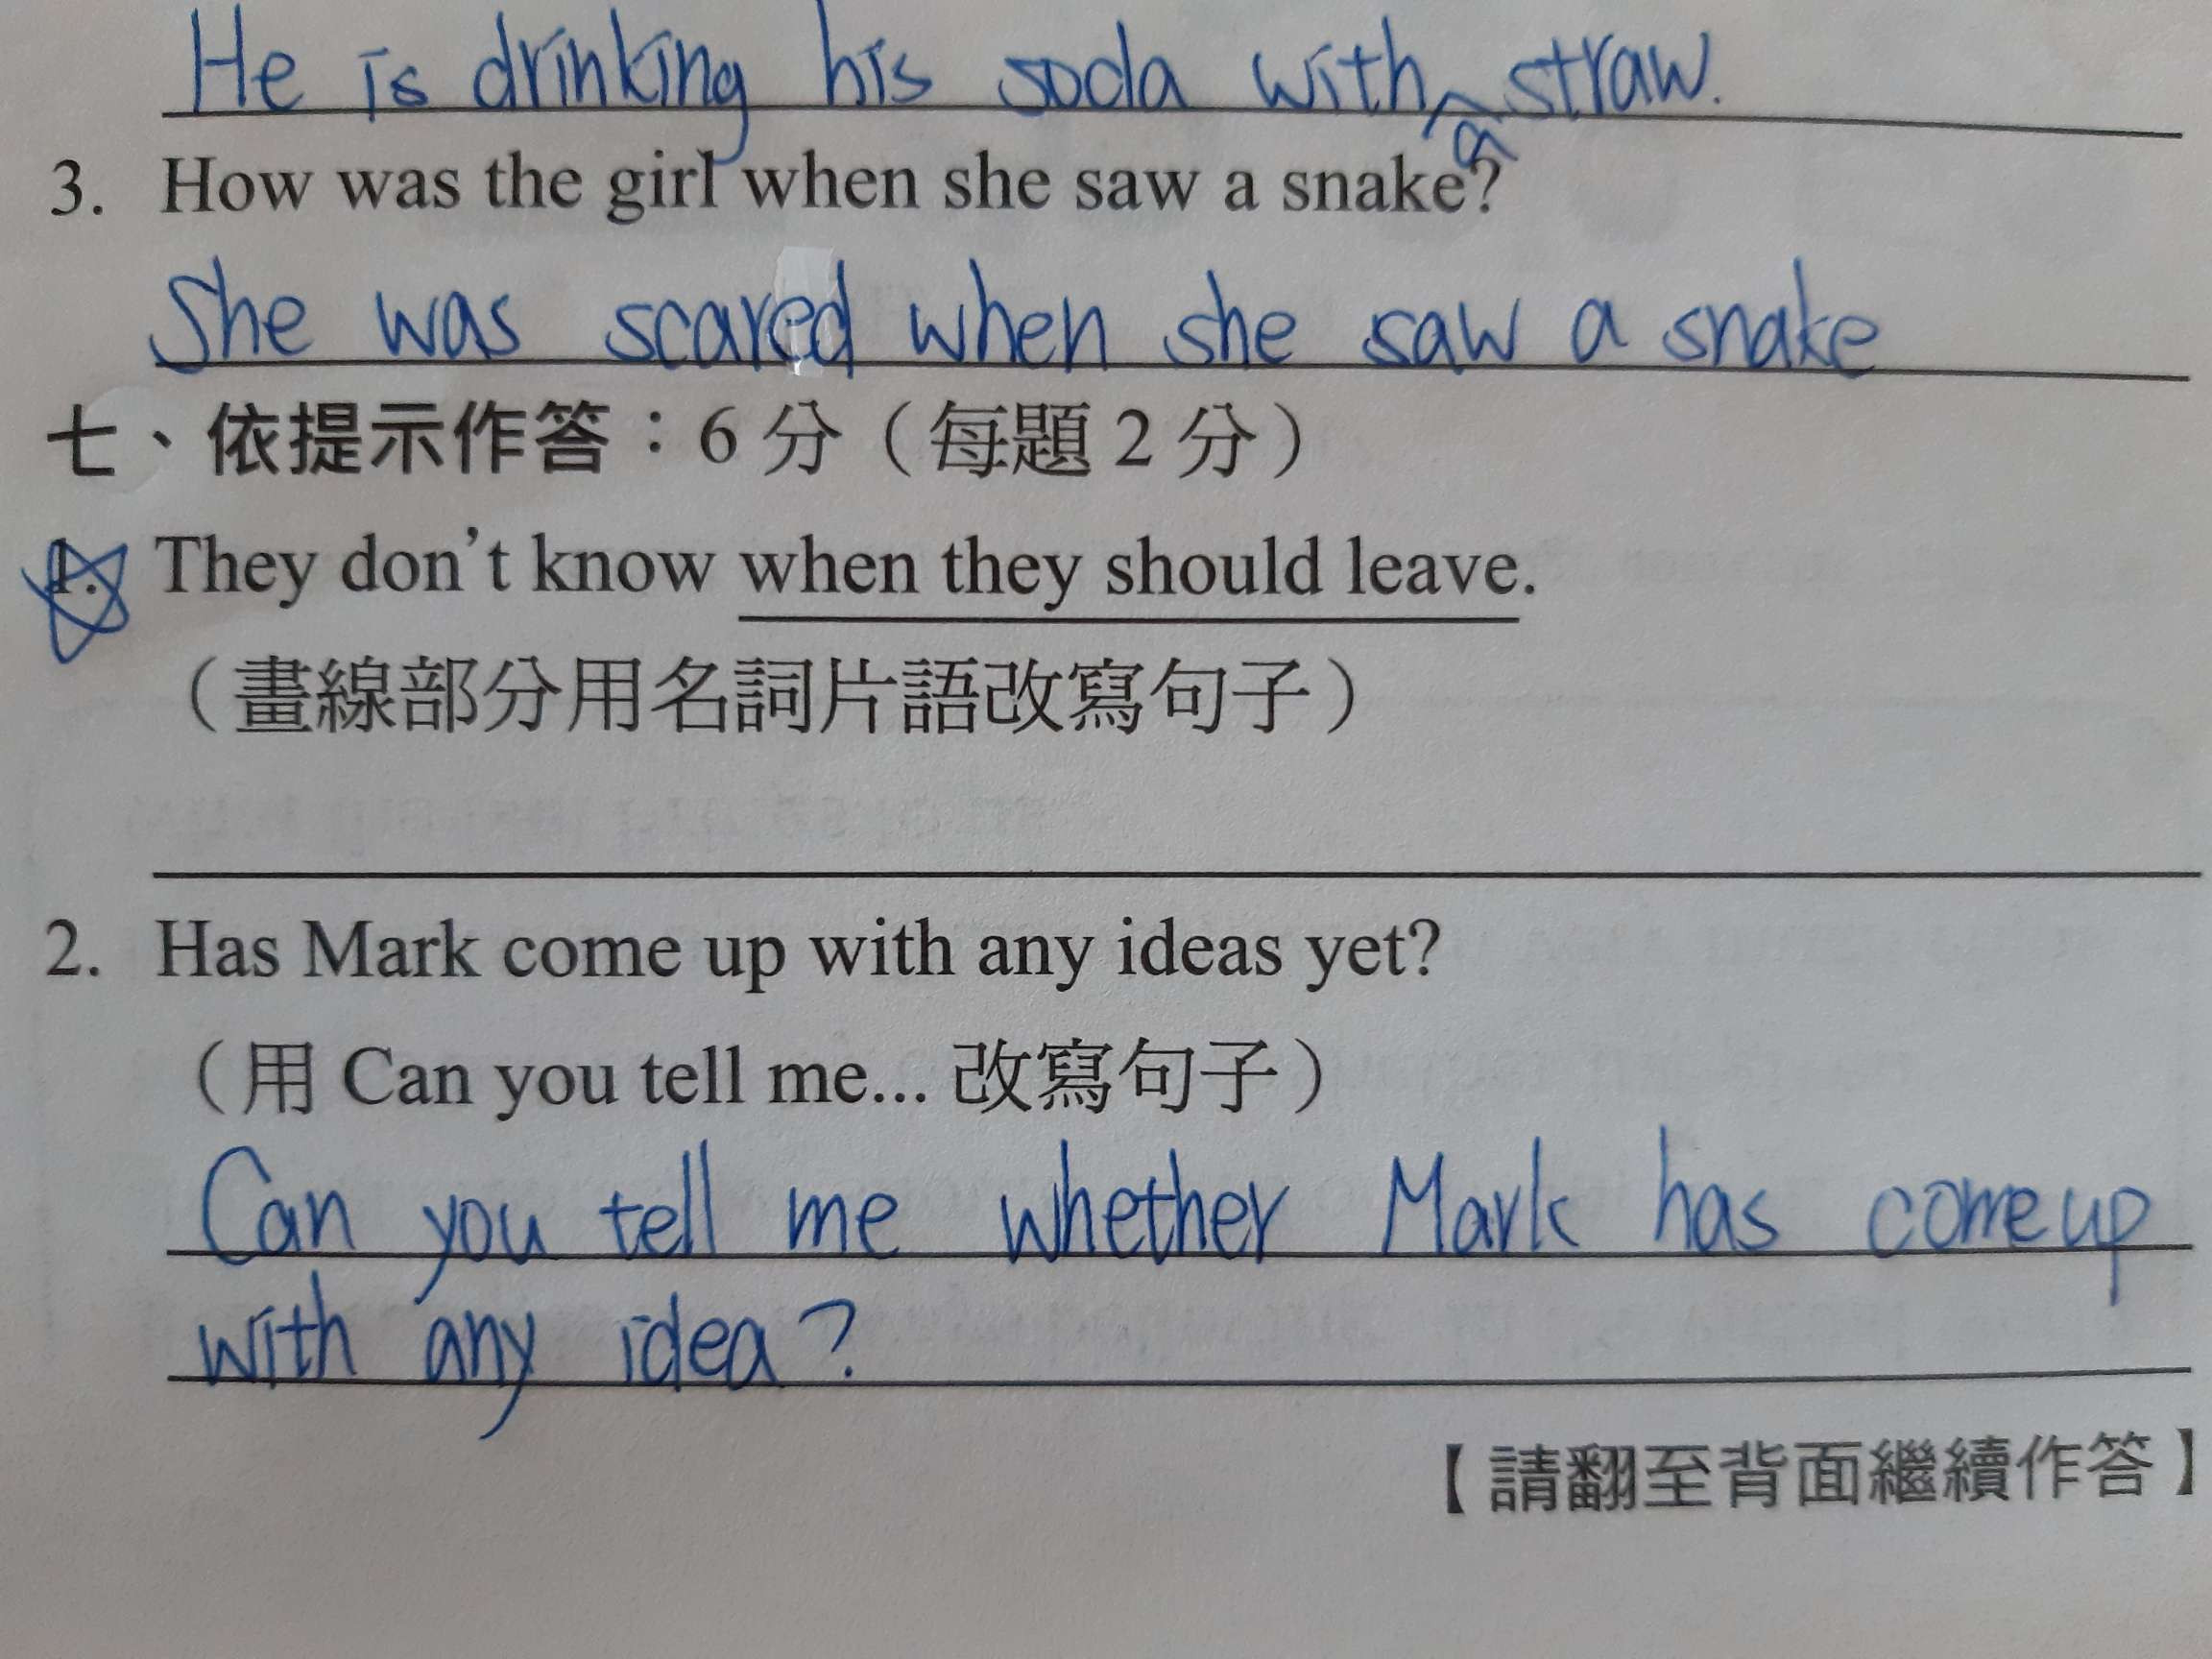 He is drinking his soda with a straw.
3. How was the girl when she saw a snake?
She was scared when she saw a snake
七、依提示作答：6 分（每題 2 分）
1. They don't know when they should leave.
（畫線部分用名詞片語改寫句子）
2. Has Mark come up with any ideas yet?
（用 Can you tell me... 改寫句子）
Can you tell me whether Mark has come up
with any idea?
【請翻至背面繼續作答】